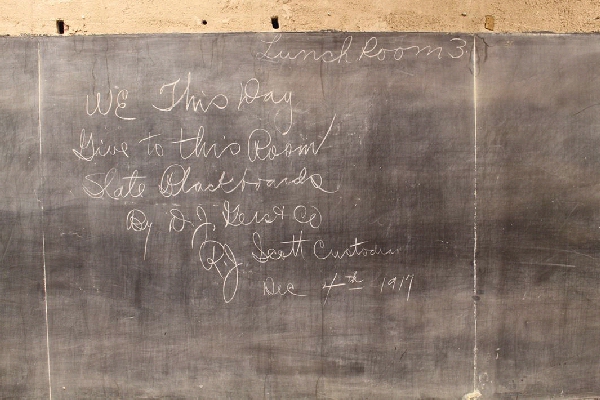 Lunch Room 3
WE This Day
Give to this Room
Slate Blackboards
By D.J. Gerst Co
R.J. Scott Custodian
Dec 4th 1917